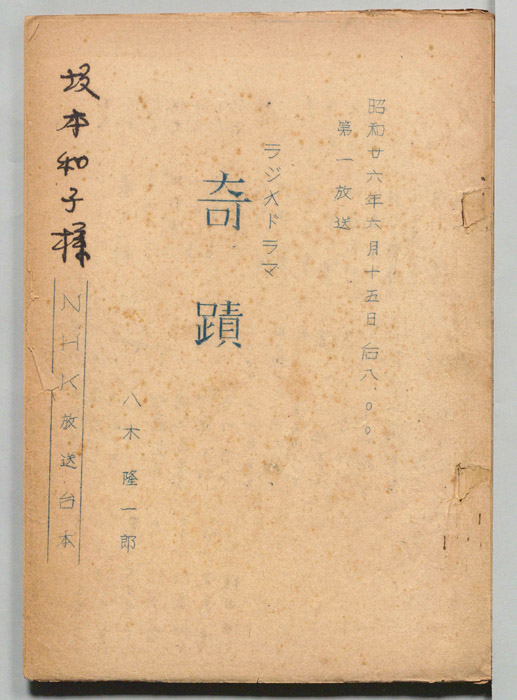 昭和廿六年六月十五日后八.〇〇
第一放送
ラジオドラマ
奇蹟
八木隆一郎
NHK放送台本
坂本和子様